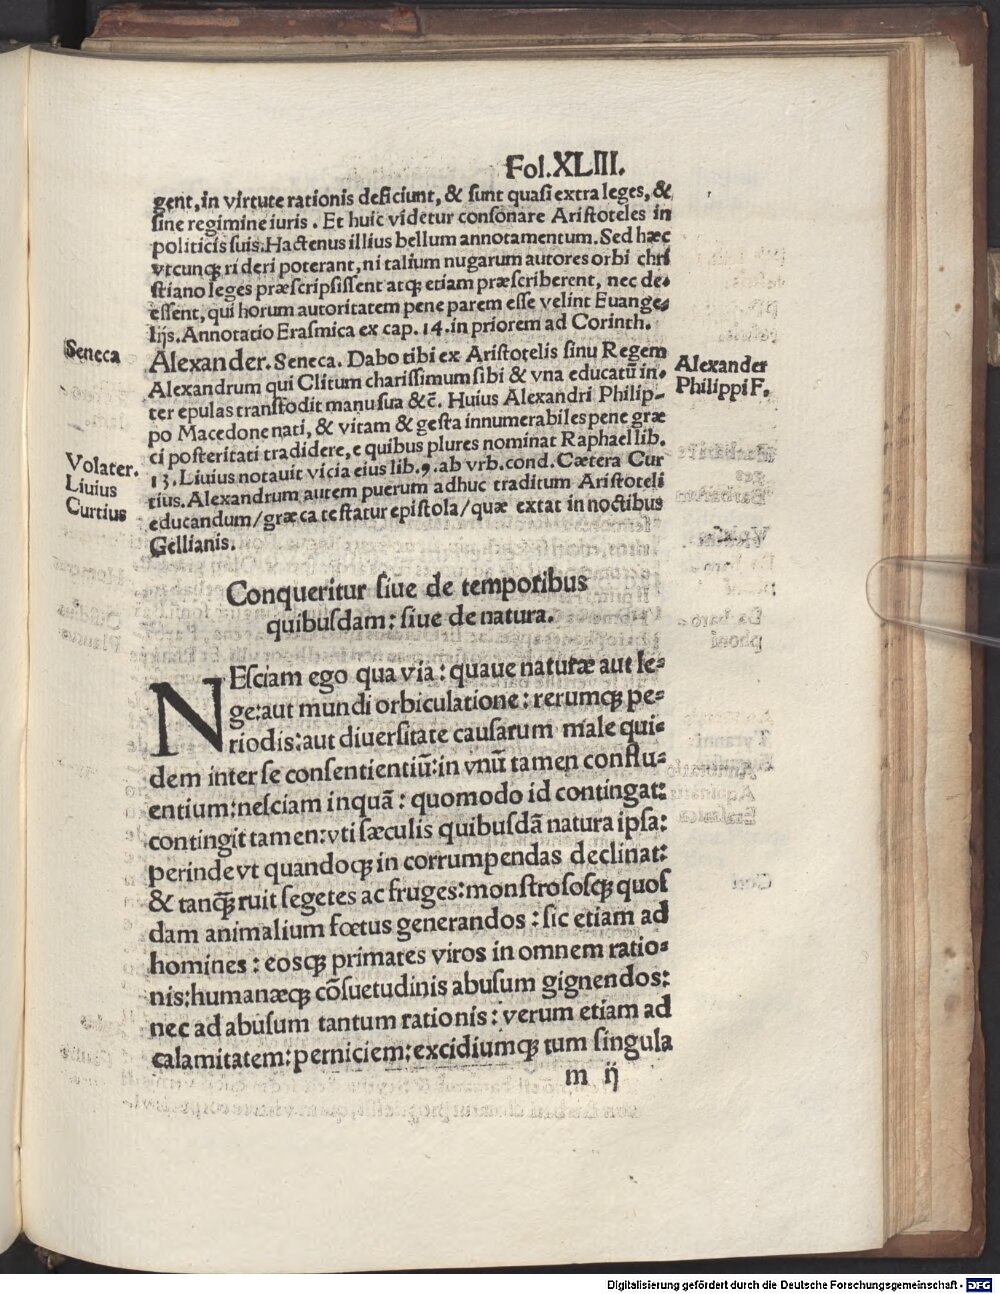 Fol.XLIII.
gent, in virtute rationis deficiunt, & sunt quasi extra leges, &
sine regimine iuris. Et huic videtur consonare Aristoteles in
politicis suis. Hactenus illius bellum annotamentum. Sed hæc
vtcunqꝫ rideri poterant, ni talium nugarum autores orbi chri
stiano leges præscripsissent atqꝫ etiam præscriberent, nec de⸗
essent, qui horum autoritatem pene parem esse velint Euange⸗
lijs. Annotatio Erasmica ex cap. 14. in priorem ad Corinth.
Seneca
Alexander. Seneca. Dabo tibi ex Aristotelis sinu Regem
Alexandrum qui Clitum charissimum sibi & vna educatū in⸗
ter epulas transfodit manu sua &c̄. Huius Alexandri Philip⸗
po Macedone nati, & vitam & gesta innumerabiles pene græ
ci posteritati tradidere, e quibus plures nominat Raphael lib.
13. Liuius notauit vicia eius lib. 9. ab vrb. cond. Cætera Cur
tius. Alexandrum autem puerum adhuc traditum Aristoteli
educandum/græca testatur epistola/quæ extat in noctibus
Gellianis.
Alexander
Philippi F.
Volater.
Liuius
Curtius
Conqueritur siue de temporibus
quibusdam: siue de natura.
NEsciam ego qua via: quaue naturæ aut le⸗
ge: aut mundi orbiculatione: rerumqꝫ pe⸗
riodis: aut diuersitate causarum male qui⸗
dem inter se consentientiū: in vnū tamen conflu⸗
entium: nesciam inquā: quomodo id contingat:
contingit tamen: vti sæculis quibusdā natura ipsa:
perinde vt quandoqꝫ in corrumpendas declinat:
& tanqꝫ̄ ruit segetes ac fruges: monstrososqꝫ quos
dam animalium fœtus generandos: sic etiam ad
homines: eosqꝫ primates viros in omnem ratio⸗
nis: humanæqꝫ cōsuetudinis abusum gignendos:
nec ad abusum tantum rationis: verum etiam ad
calamitatem: perniciem: excidiumqꝫ tum singula
m ij
Digitalisierung gefördert durch die Deutsche Forschungsgemeinschaft - DFG